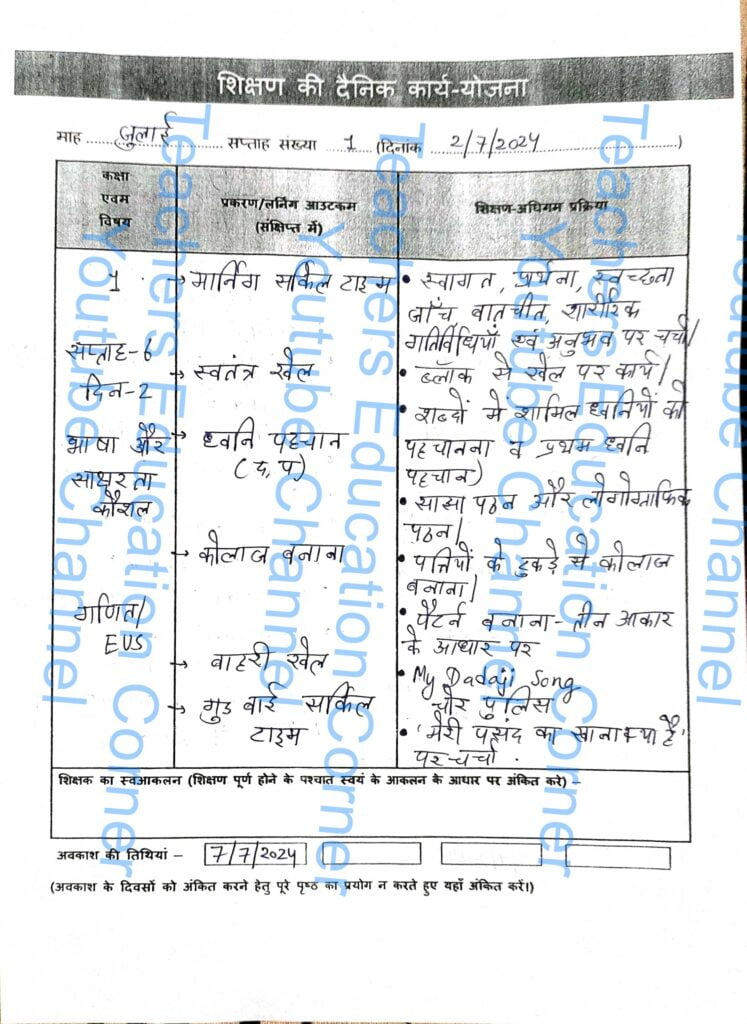 शिक्षण की दैनिक कार्य-योजना
माह जुलाई सप्ताह संख्या 1 (दिनांक 2/7/2024)
कक्षा
एवम
विषय
प्रकरण/लर्निग आउटकम
(संक्षिप्त में)
शिक्षण-अधिगम प्रक्रिया
1
सप्ताह-6
दिन-2
भाषा और
साक्षरता
कौशल
गणित/
EVS
→ मार्निग सर्किल टाइम
→ स्वतंत्र खेल
→ ध्वनि पहचान
(द, प)
→ कोलाज बनाना
→ बाहरी खेल
→ गुड बाई सर्किल
टाइम
• स्वागत, प्रर्थना, स्वच्छता
जाँच बातचीत, शारीरिक
गतिविधियाँ एवं अनुभव पर चर्चा।
• ब्लॉक से खेल पर कार्य।
• शब्दों में शामिल ध्वनियों को
पहचानना व प्रथम ध्वनि
पहचान)
• साझा पठन और लोगोग्राफिक
पठन।
• पत्तियों के टुकड़े से कोलाज
बनाना।
• पैटर्न बनाना- तीन आकार
के आधार पर
• My Dadaji Song
चोर पुलिस
• 'मेरी पसंद का खाना क्या है'
पर चर्चा.
शिक्षक का स्वआकलन (शिक्षण पूर्ण होने के पश्चात स्वयं के आकलन के आधार पर अंकित करे) –
अवकाश की तिथियां – 7/7/2024
(अवकाश के दिवसों को अंकित करने हेतु पूरे पृष्ठ का प्रयोग न करते हुए यहाँ अंकित करें।)
Teachers Education Corner
Youtube Channel
Teachers Education Corner
Youtube Channel
Teachers Education Corner
Youtube Channel